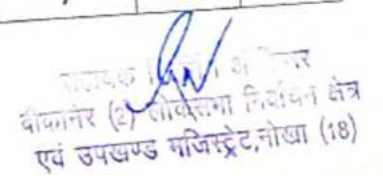 सहायक
बीकानेर (2) लोकसभा निर्वाचन क्षेत्र
एवं उपखण्ड मजिस्ट्रेट,नोखा (18)